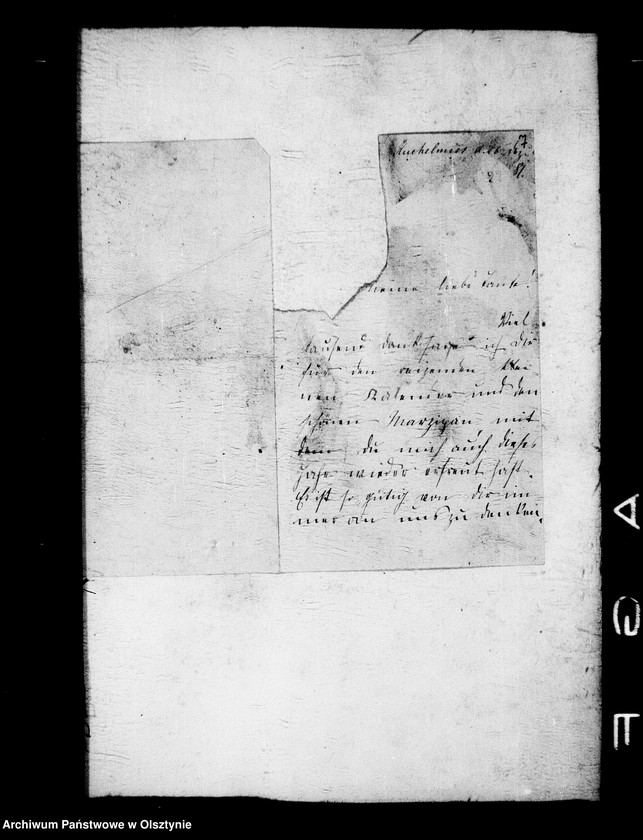 Kuchelmiss d. 26
Meine liebe Tante!
Viel
tausend Dank sage ich Dir
für den reizenden klei
nen Kalender und den
schönen Marzipan mit
dem du mich auch dieses
Jahr wieder erfreut hast.
Es ist so gütig von dir im
mer an uns zu denken,
A G F
Archiwum Państwowe w Olsztynie